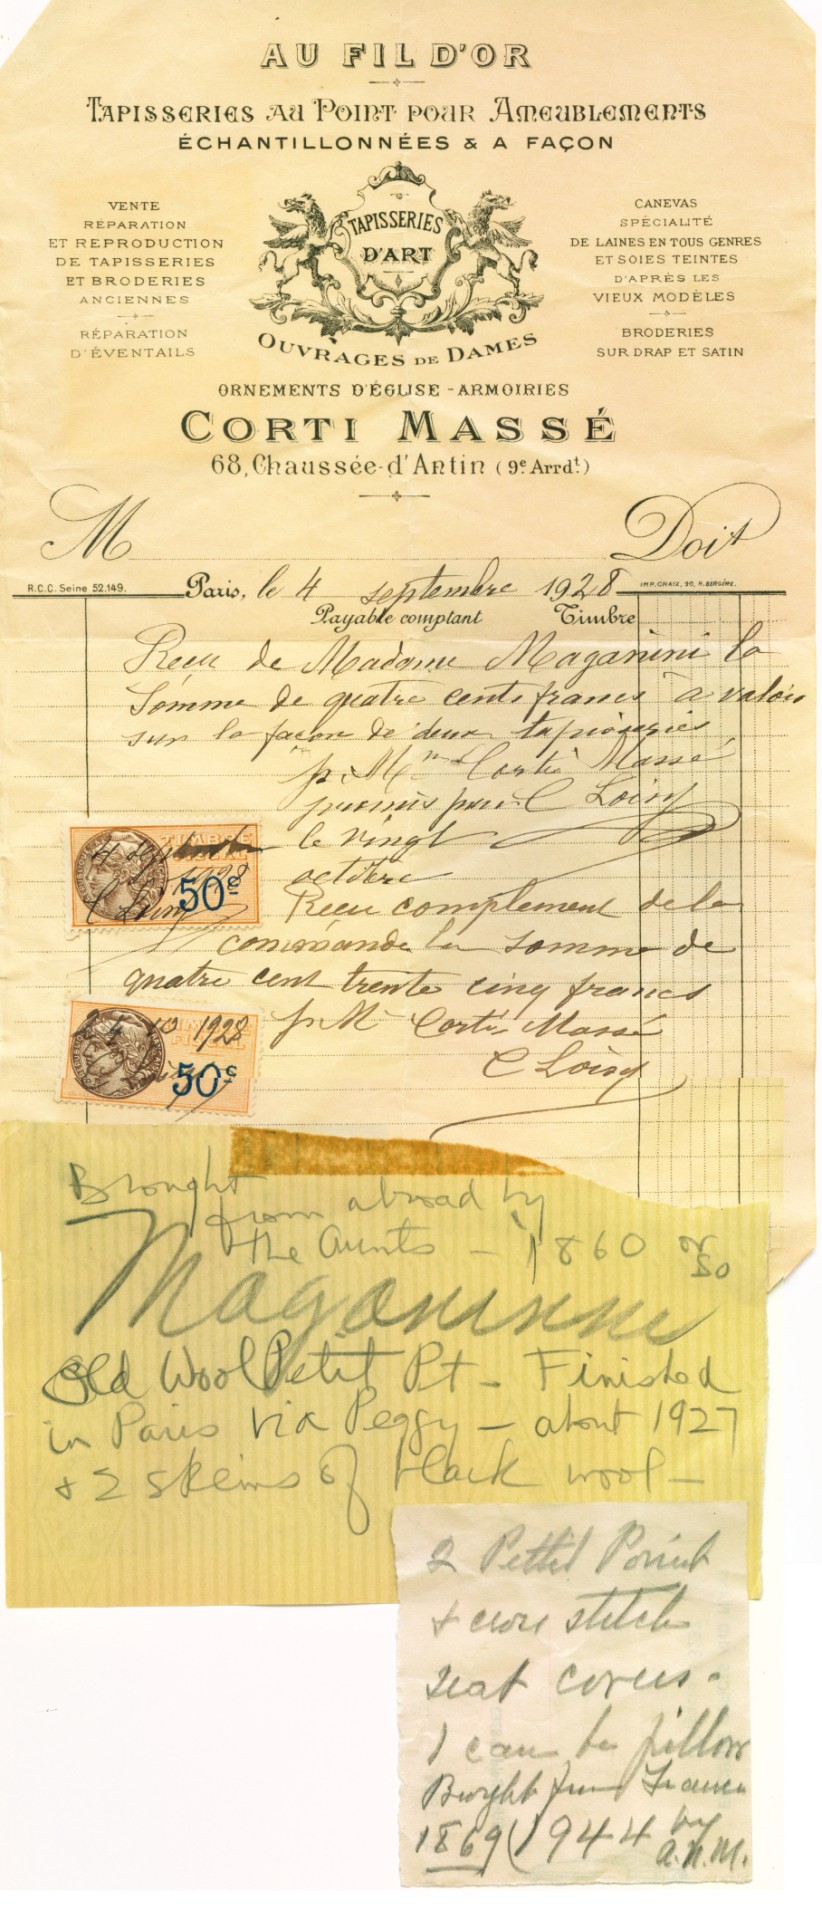 AU FIL D'OR
TAPISSERIES AU POINT POUR AMEUBLEMENTS
ÉCHANTILLONNÉES & A FAÇON
VENTE
RÉPARATION
ET REPRODUCTION
DE TAPISSERIES
ET BRODERIES
ANCIENNES
RÉPARATION
D'ÉVENTAILS
TAPISSERIES
D'ART
OUVRAGES DE DAMES
CANEVAS
SPÉCIALITÉ
DE LAINES EN TOUS GENRES
ET SOIES TEINTES
D'APRÈS LES
VIEUX MODÈLES
BRODERIES
SUR DRAP ET SATIN
ORNEMENTS D'ÉGLISE - ARMOIRIES
CORTI MASSÉ
68, Chaussée-d'Antin (9e Arrdt.)
M Doit
R.C.C. Seine 52.149.
Paris, le 4 septembre 1928
IMP. CHAIX, 20, R. BERGÈRE.
Payable comptant Timbre
Reçu de Madame Maganini la
somme de quatre cents francs à valoir
sur la façon de deux tapisseries
p. Mon Corti Massé
promis pour C Loisy
le vingt
octobre
TIMBRE
FISCAL
4 septembre
1928
50c
C Loisy
Reçu complement de la
commande la somme de
quatre cent trente cinq francs
p M Corti-Massé
C Loisy
24 10 1928
FISCAL
50c
Brought
from abroad by
the Aunts - 1860 or so
Maganini
Old Wool Petit Pt - Finished
in Paris via Peggy - about 1927
& 2 skeins of black wool -
2 Pettit Point
& cross stitch
seat covers.
1 can be pillow
Bought from France
1869 (1944 by
A.N.M.